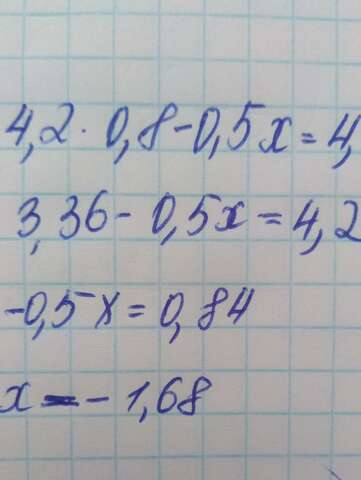 4,2 · 0,8 - 0,5x = 4,
3,36 - 0,5x = 4,2
-0,5x = 0,84
x = - 1,68